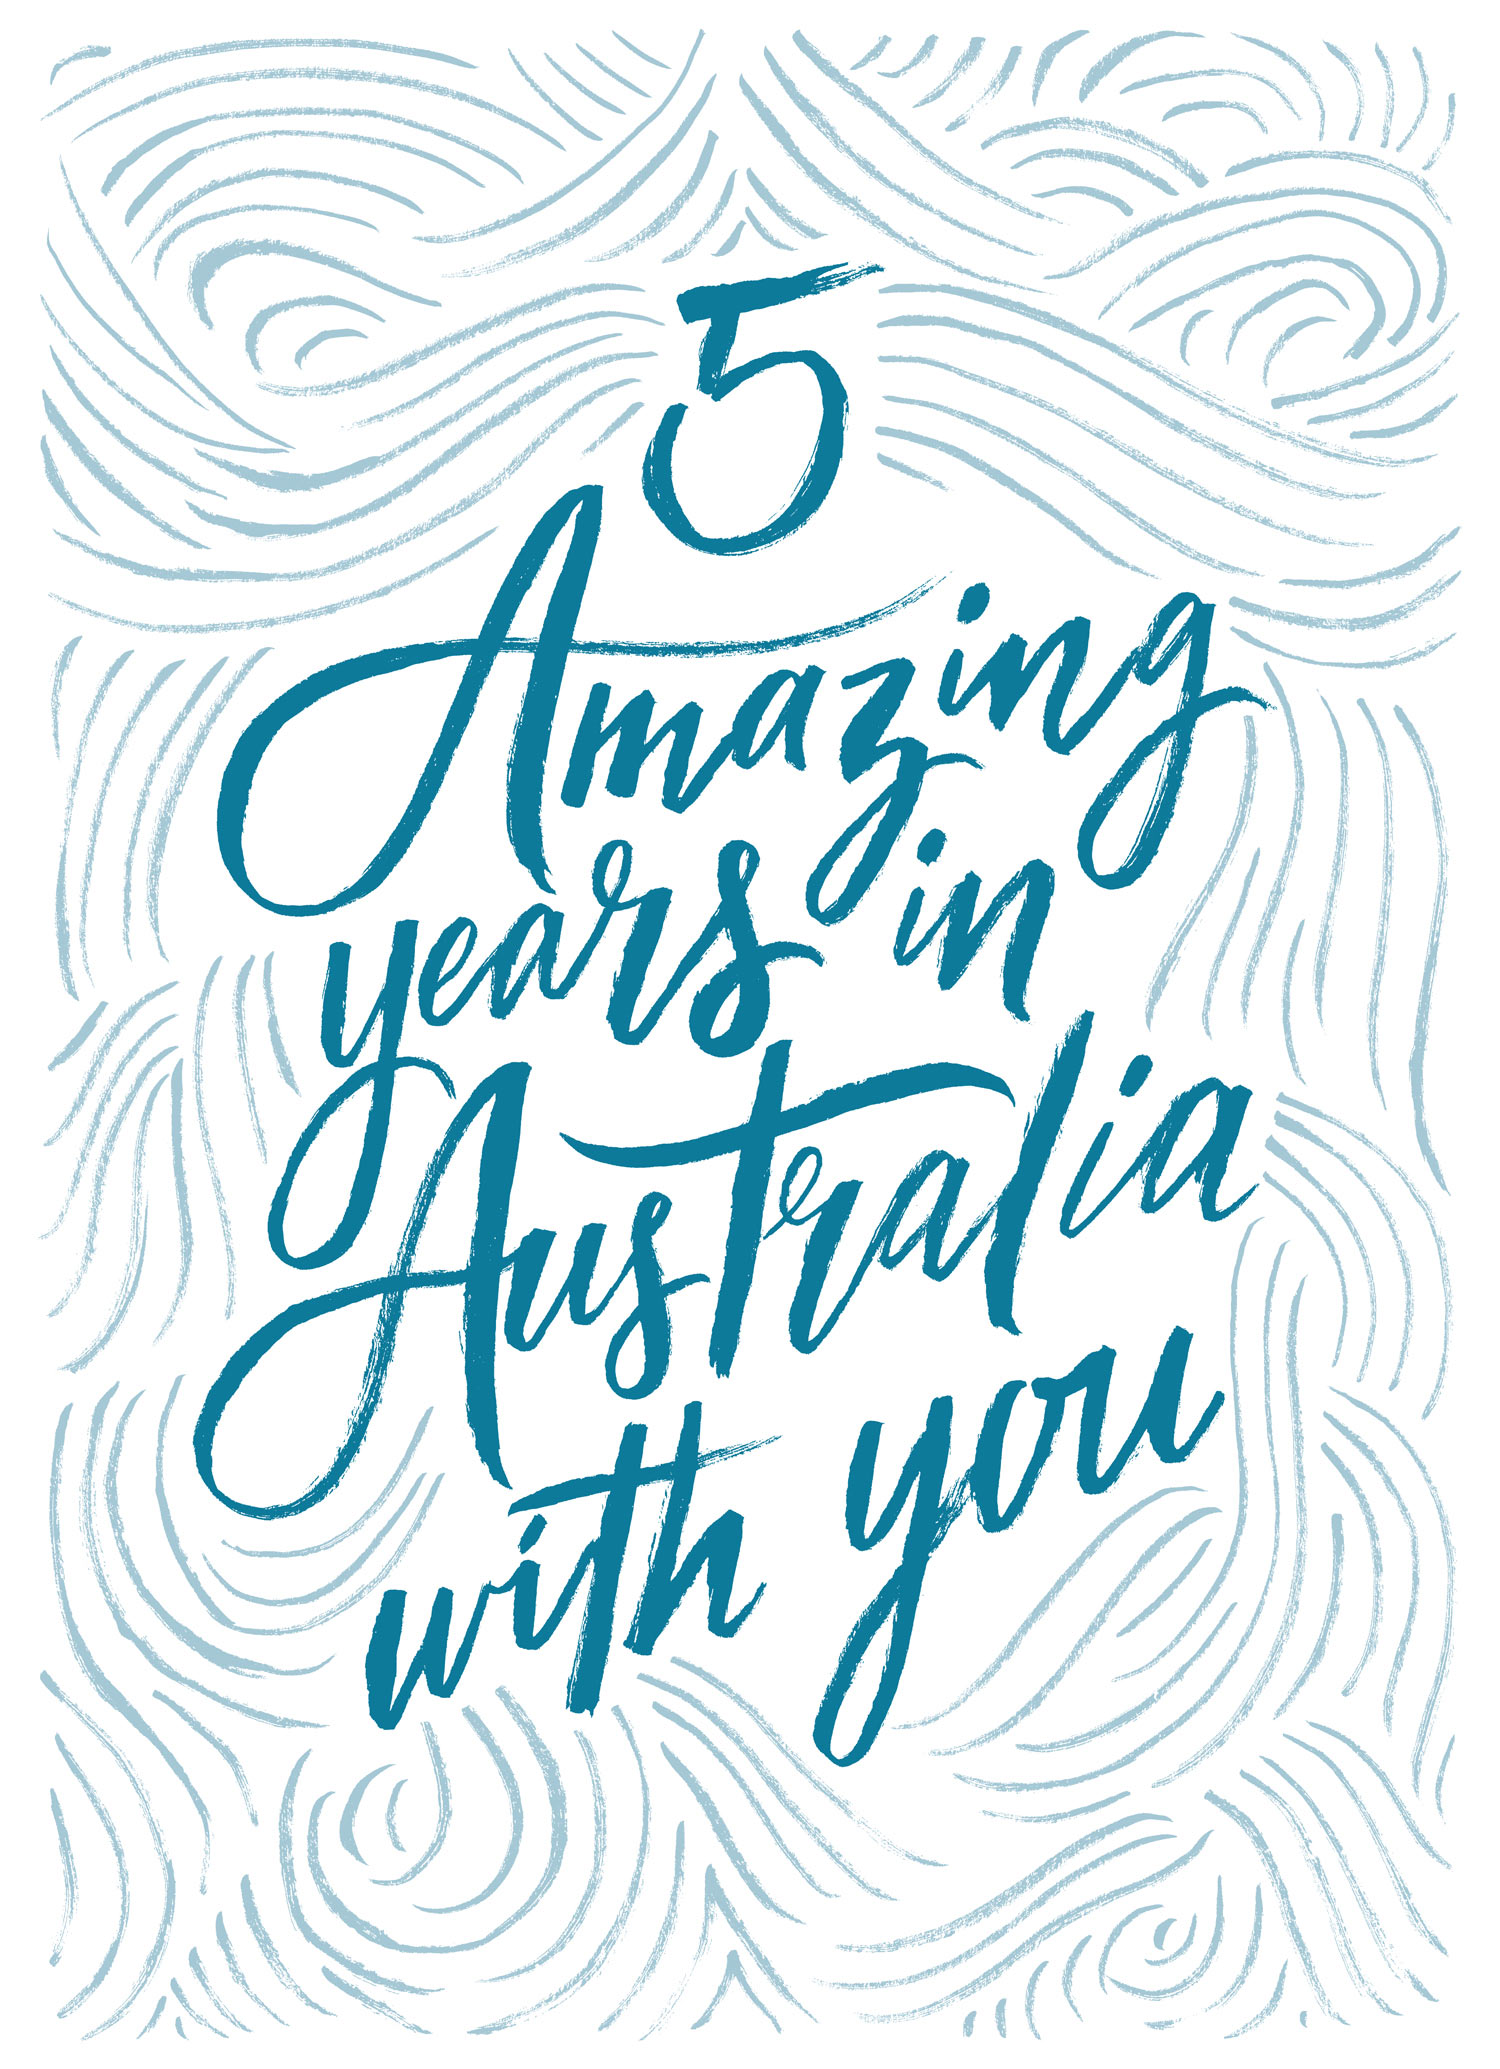 5
Amazing
years in
Australia
with you